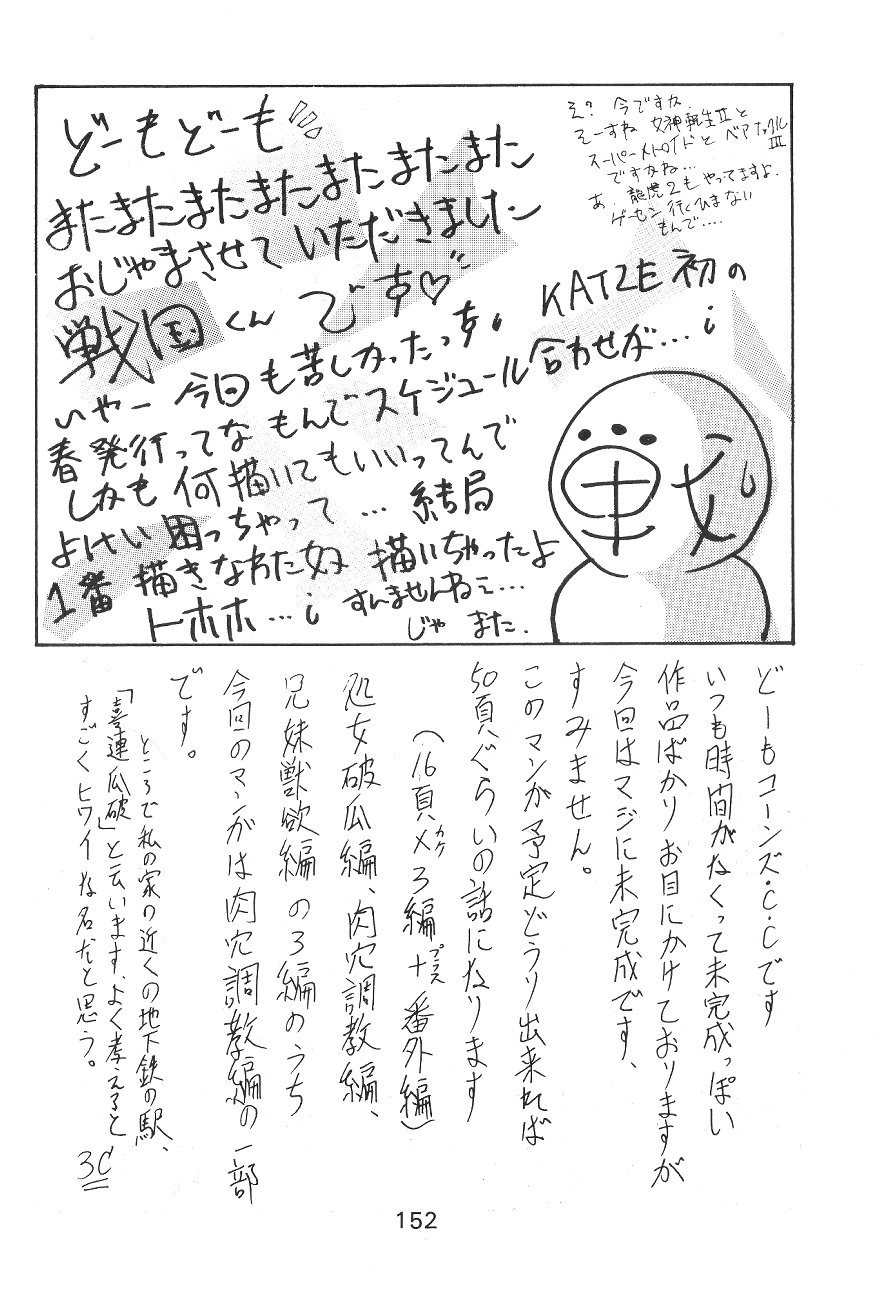 どーもどーも
またまたまたまたまたまたまた
おじゃまさせていただきました
戦国くんです♡
いやー今回も苦しかったっす。KATZE初の
春発行ってなもんでスケジュール合わせが…
しかも何描いてもいいってんで
よけい困っちゃって…結局
1番描きなれた奴描いちゃったよ
トホホ…すんませんねェ…
じゃまた.
え?今ですか.
そーすね女神転生Ⅱと
スーパーメトロイドとベアナックルⅢ
ですかね…
あ、龍虎2もやってますよ.
ゲーセン行くひまない
もんで….
どーもコーンズ・C・Cです
いつも時間がなくって未完成っぽい
作品ばかりお目にかけておりますが
今回はマジに未完成です、
すみません。
このマンガ予定どうり出来れば
50頁ぐらいの話になります
(16頁×カケ3編+プラス番外編)
処女破瓜編、肉穴調教編、
兄妹獣欲編の3編のうち
今回のマンガは肉穴調教編の一部
です。
ところで私の家の近くの地下鉄の駅、
「喜連瓜破」と云います、よく考えると
すごくヒワイな名だと思う。
3C
152